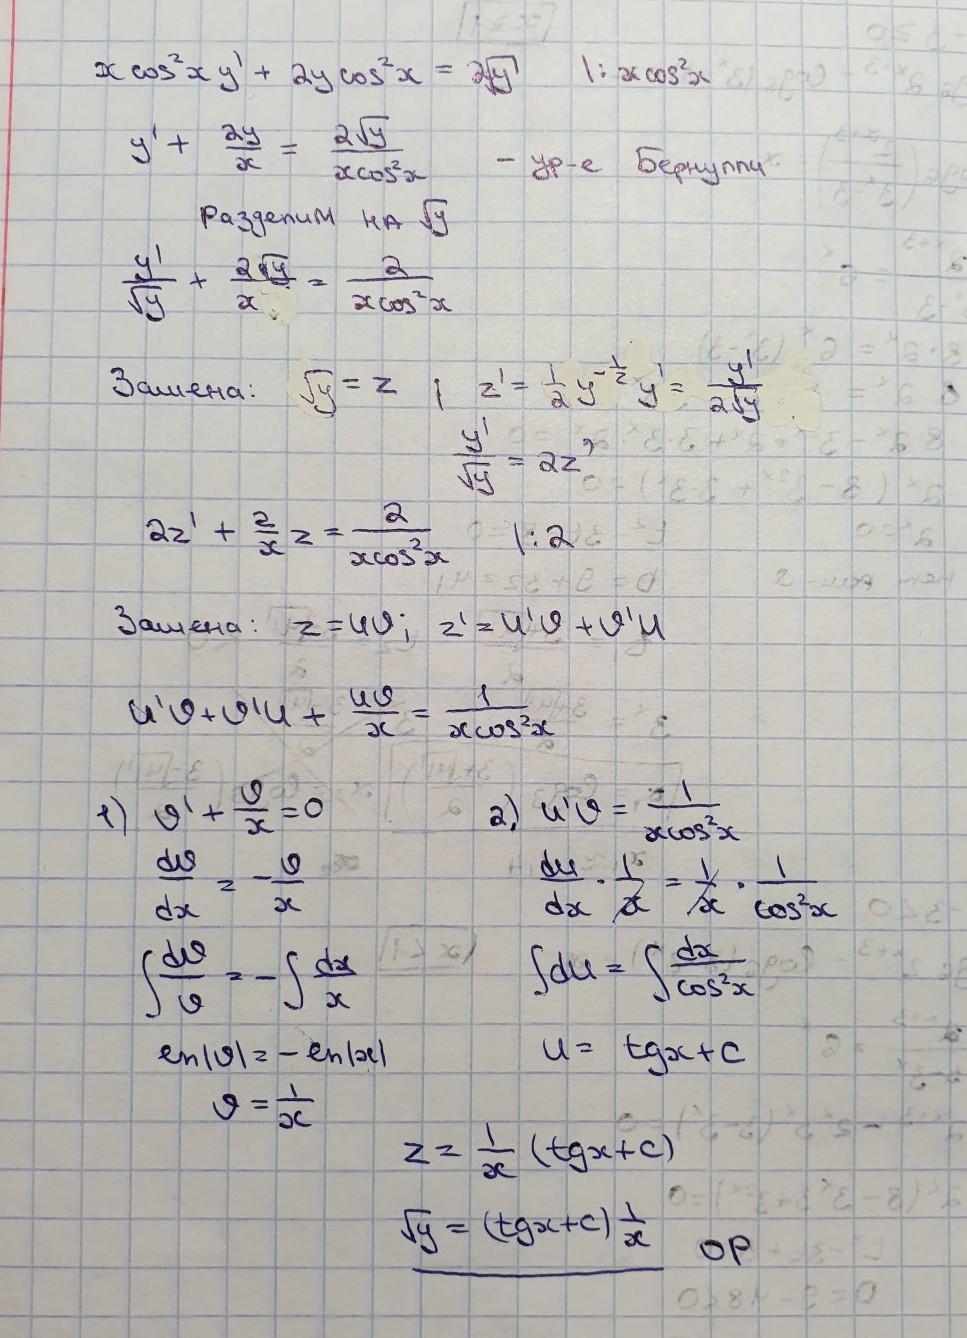 x cos²x y' + 2y cos²x = 2√y |: x cos²x
y' + 2y/x = 2√y/(x cos²x) - ур-е Бернулли
Разделим на √y
y'/√y + 2√y/x = 2/(x cos²x)
Замена: √y = z | z' = 1/2 y^(-1/2) y' = y'/(2√y)
y'/√y = 2z'
2z' + 2/x z = 2/(x cos²x) |: 2
Замена: z = uv; z' = u'v + v'u
u'v + v'u + uv/x = 1/(x cos²x)
1) v' + v/x = 0
dv/dx = - v/x
∫ dv/v = - ∫ dx/x
ln|v| = - ln|x|
v = 1/x
2) u'v = 1/(x cos²x)
du/dx · 1/x = 1/x · 1/cos²x
∫ du = ∫ dx/cos²x
u = tgx + c
z = 1/x (tgx + c)
√y = (tgx + c) 1/x ОР